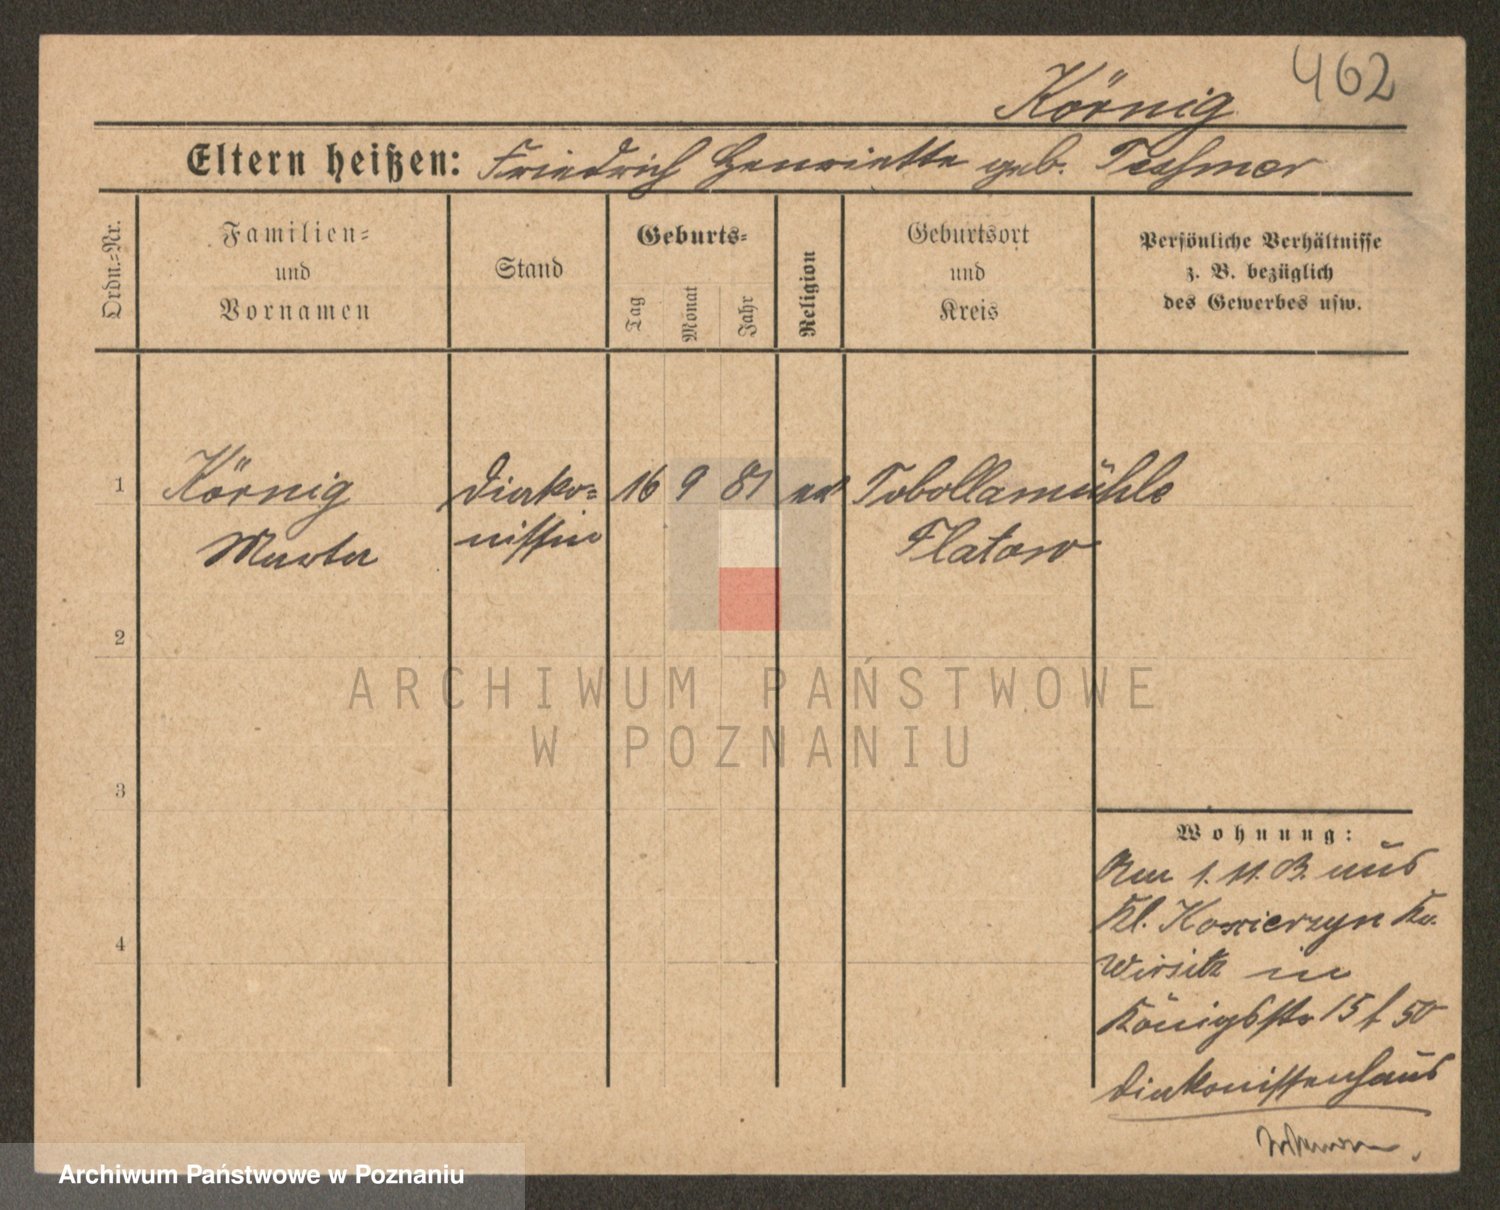 462
Körnig
Eltern heißen: Friedrich Henriette geb. Teschmer
Ordn.-Nr.
Familien-
und
Vornamen
Stand
Geburts-
Tag
Monat
Jahr
Religion
Geburtsort
und
Kreis
Persönliche Verhältnisse
z. B. bezüglich
des Gewerbes usw.
1 Körnig Diako- 16 9 81 ev Tobollamühle
Martha nissin Flatow
2
3
4
Wohnung:
Am 1. 11. 13. aus
Kl. Koscierzyn Kr.
Wirsitz in
Königsstr 15 f 50
Diakonissenhaus
ARCHIWUM PAŃSTWOWE
W POZNANIU
Archiwum Państwowe w Poznaniu